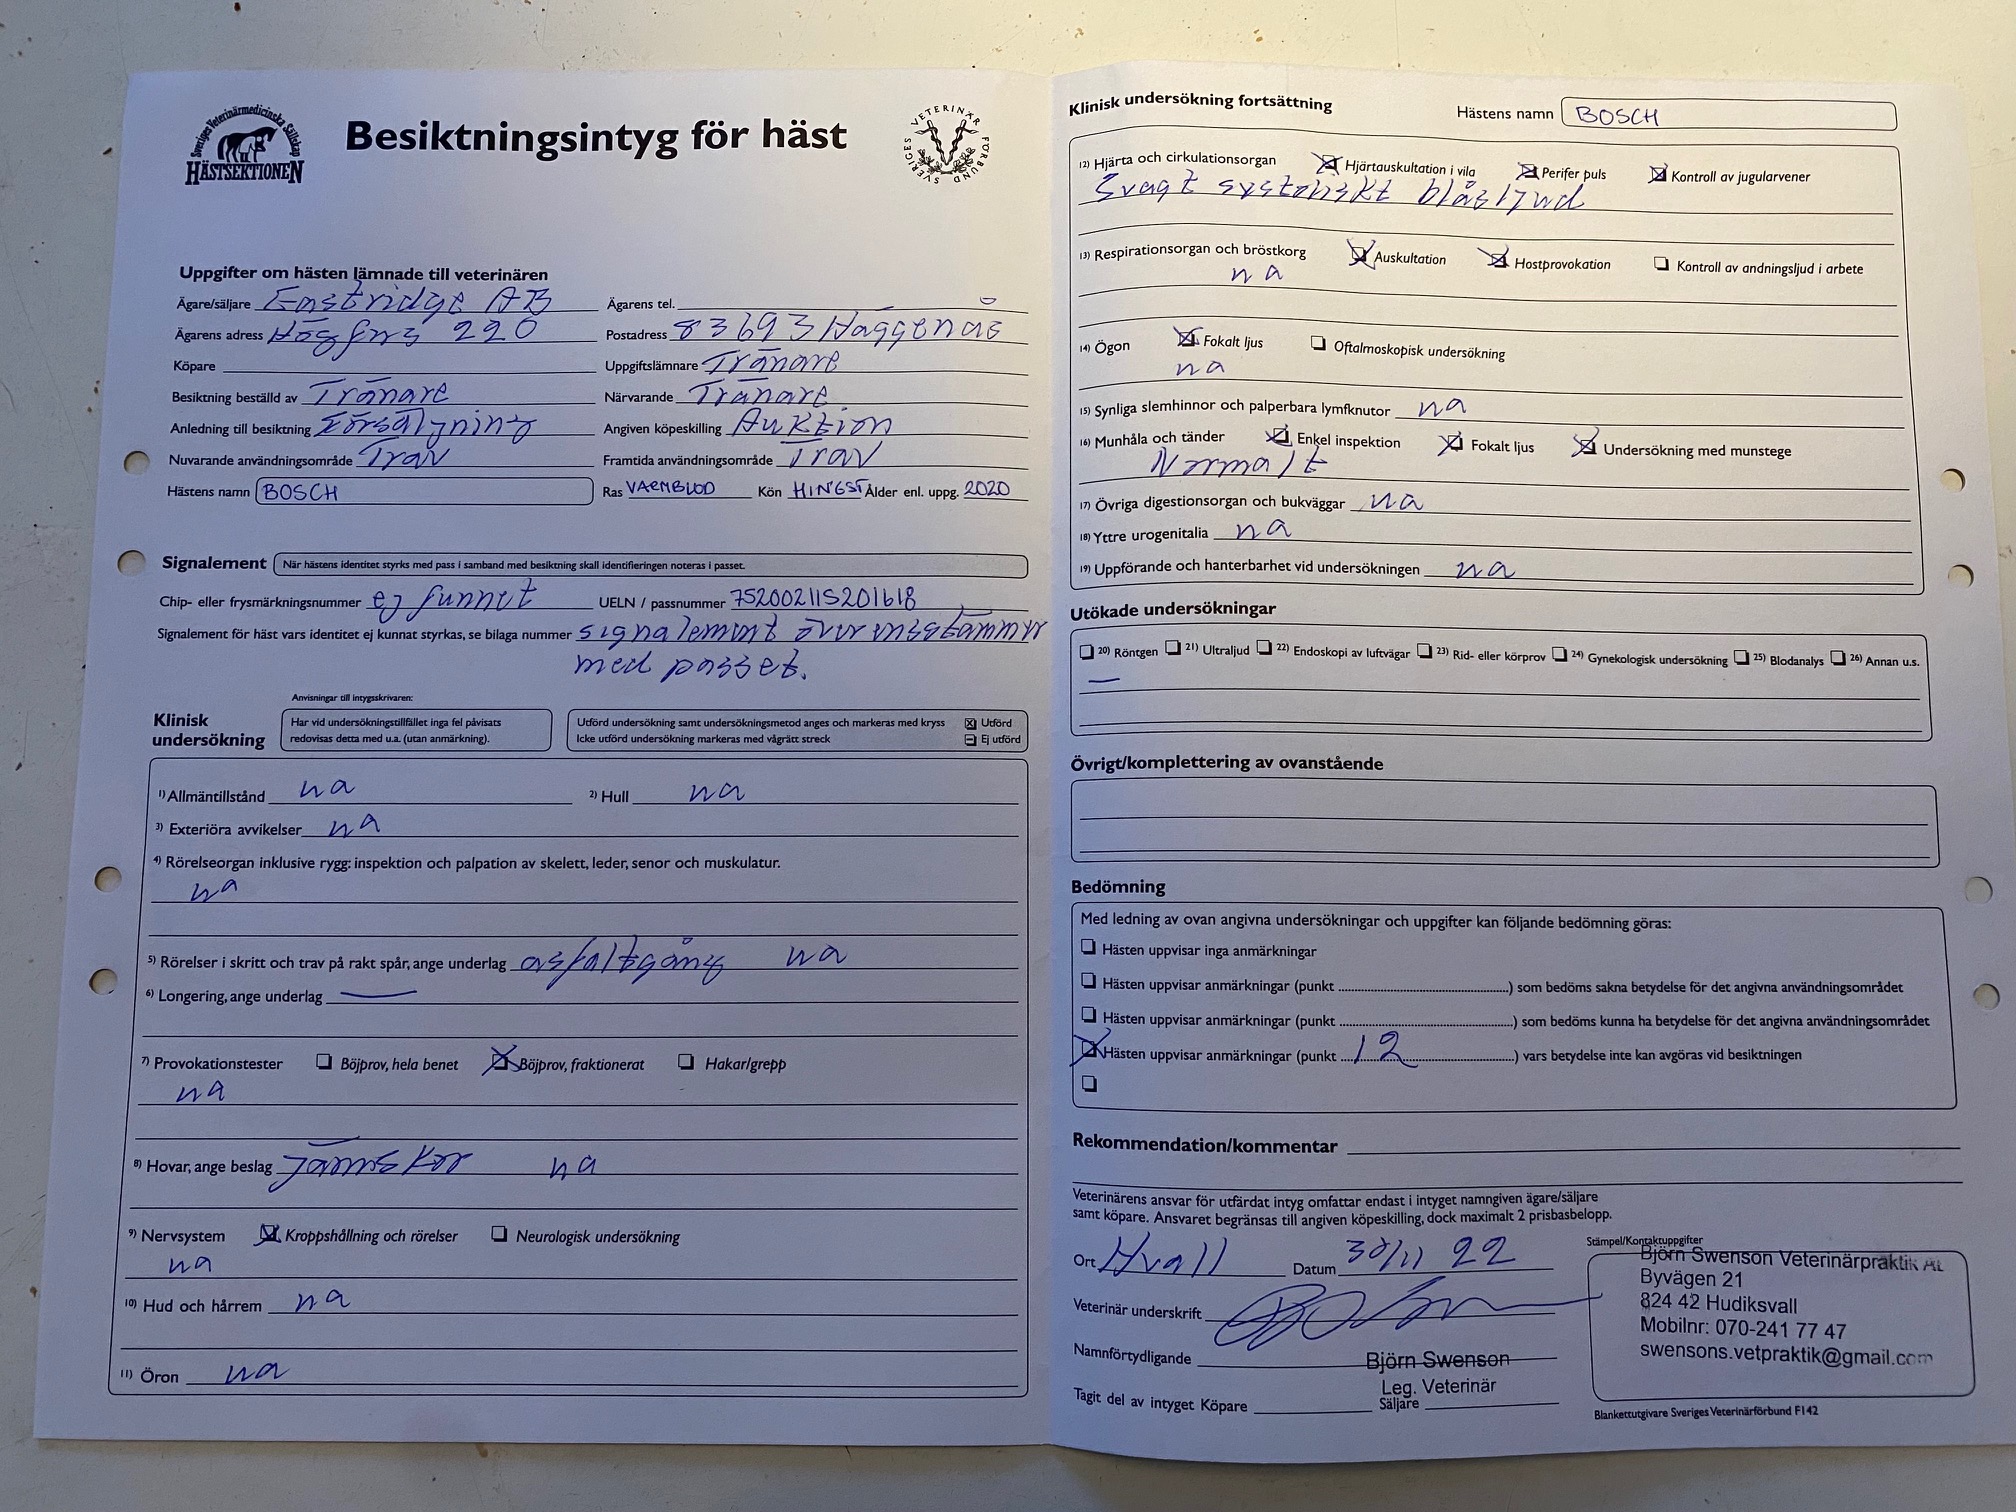 Sveriges Veterinärmedicinska Sällskap
HÄSTSEKTIONEN
Besiktningsintyg för häst
SVERIGES VETERINÄR FÖRBUND
Uppgifter om hästen lämnade till veterinären
Ägare/säljare Eastridge AB Ägarens tel.
Ägarens adress Högfors 220 Postadress 83693 Häggenås
Köpare Uppgiftslämnare Tränare
Besiktning beställd av Tränare Närvarande Tränare
Anledning till besiktning Försäljning Angiven köpeskilling Auktion
Nuvarande användningsområde Trav Framtida användningsområde Trav
Hästens namn BOSCH Ras VARMBLOD Kön HINGST Ålder enl. uppg. 2020
Signalement När hästens identitet styrks med pass i samband med besiktning skall identifieringen noteras i passet.
Chip- eller frysmärkningsnummer ej funnet UELN / passnummer 752002115201618
Signalement för häst vars identitet ej kunnat styrkas, se bilaga nummer signalement överensstämmer
med passet.
Anvisningar till intygsskrivaren:
Klinisk undersökning
Har vid undersökningstillfället inga fel påvisats
redovisas detta med u.a. (utan anmärkning).
Utförd undersökning samt undersökningsmetod anges och markeras med kryss Utförd
Icke utförd undersökning markeras med vågrätt streck Ej utförd
1) Allmäntillstånd ua 2) Hull ua
3) Exteriöra avvikelser ua
4) Rörelseorgan inklusive rygg: inspektion och palpation av skelett, leder, senor och muskulatur.
ua
5) Rörelser i skritt och trav på rakt spår, ange underlag asfaltgång ua
6) Longering, ange underlag —
7) Provokationstester Böjprov, hela benet Böjprov, fraktionerat Hakar/grepp
ua
8) Hovar, ange beslag Järnskor ua
9) Nervsystem Kroppshållning och rörelser Neurologisk undersökning
ua
10) Hud och hårrem ua
11) Öron ua
Klinisk undersökning fortsättning Hästens namn BOSCH
12) Hjärta och cirkulationsorgan Hjärtauskultation i vila Perifer puls Kontroll av jugularvener
Svagt systoliskt blåsljud
13) Respirationsorgan och bröstkorg Auskultation Hostprovokation Kontroll av andningsljud i arbete
ua
14) Ögon Fokalt ljus Oftalmoskopisk undersökning
ua
15) Synliga slemhinnor och palperbara lymfknutor ua
16) Munhåla och tänder Enkel inspektion Fokalt ljus Undersökning med munstege
Normalt
17) Övriga digestionsorgan och bukväggar ua
18) Yttre urogenitalia ua
19) Uppförande och hanterbarhet vid undersökningen ua
Utökade undersökningar
20) Röntgen 21) Ultraljud 22) Endoskopi av luftvägar 23) Rid- eller körprov 24) Gynekologisk undersökning 25) Blodanalys 26) Annan u.s.
—
Övrigt/komplettering av ovanstående
Bedömning
Med ledning av ovan angivna undersökningar och uppgifter kan följande bedömning göras:
Hästen uppvisar inga anmärkningar
Hästen uppvisar anmärkningar (punkt ..........) som bedöms sakna betydelse för det angivna användningsområdet
Hästen uppvisar anmärkningar (punkt ..........) som bedöms kunna ha betydelse för det angivna användningsområdet
Hästen uppvisar anmärkningar (punkt 12) vars betydelse inte kan avgöras vid besiktningen
Rekommendation/kommentar
Veterinärens ansvar för utfärdat intyg omfattar endast i intyget namngiven ägare/säljare
samt köpare. Ansvaret begränsas till angiven köpeskilling, dock maximalt 2 prisbasbelopp.
Ort Hvall Datum 30/11 22
Veterinär underskrift
Namnförtydligande Björn Swenson
Leg. Veterinär
Tagit del av intyget Köpare Säljare
Stämpel/Kontaktuppgifter
Björn Swenson Veterinärpraktik AB
Byvägen 21
824 42 Hudiksvall
Mobilnr: 070-241 77 47
swensons.vetpraktik@gmail.com
Blankettutgivare Sveriges Veterinärförbund F142